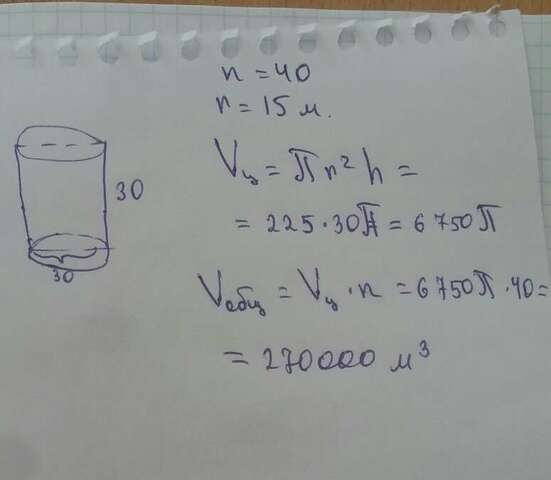 n = 40
r = 15 м.
30
30
Vц = πr²h =
= 225·30π = 6750π
Vобщ = Vц·n = 6750π·40=
= 270000 м³